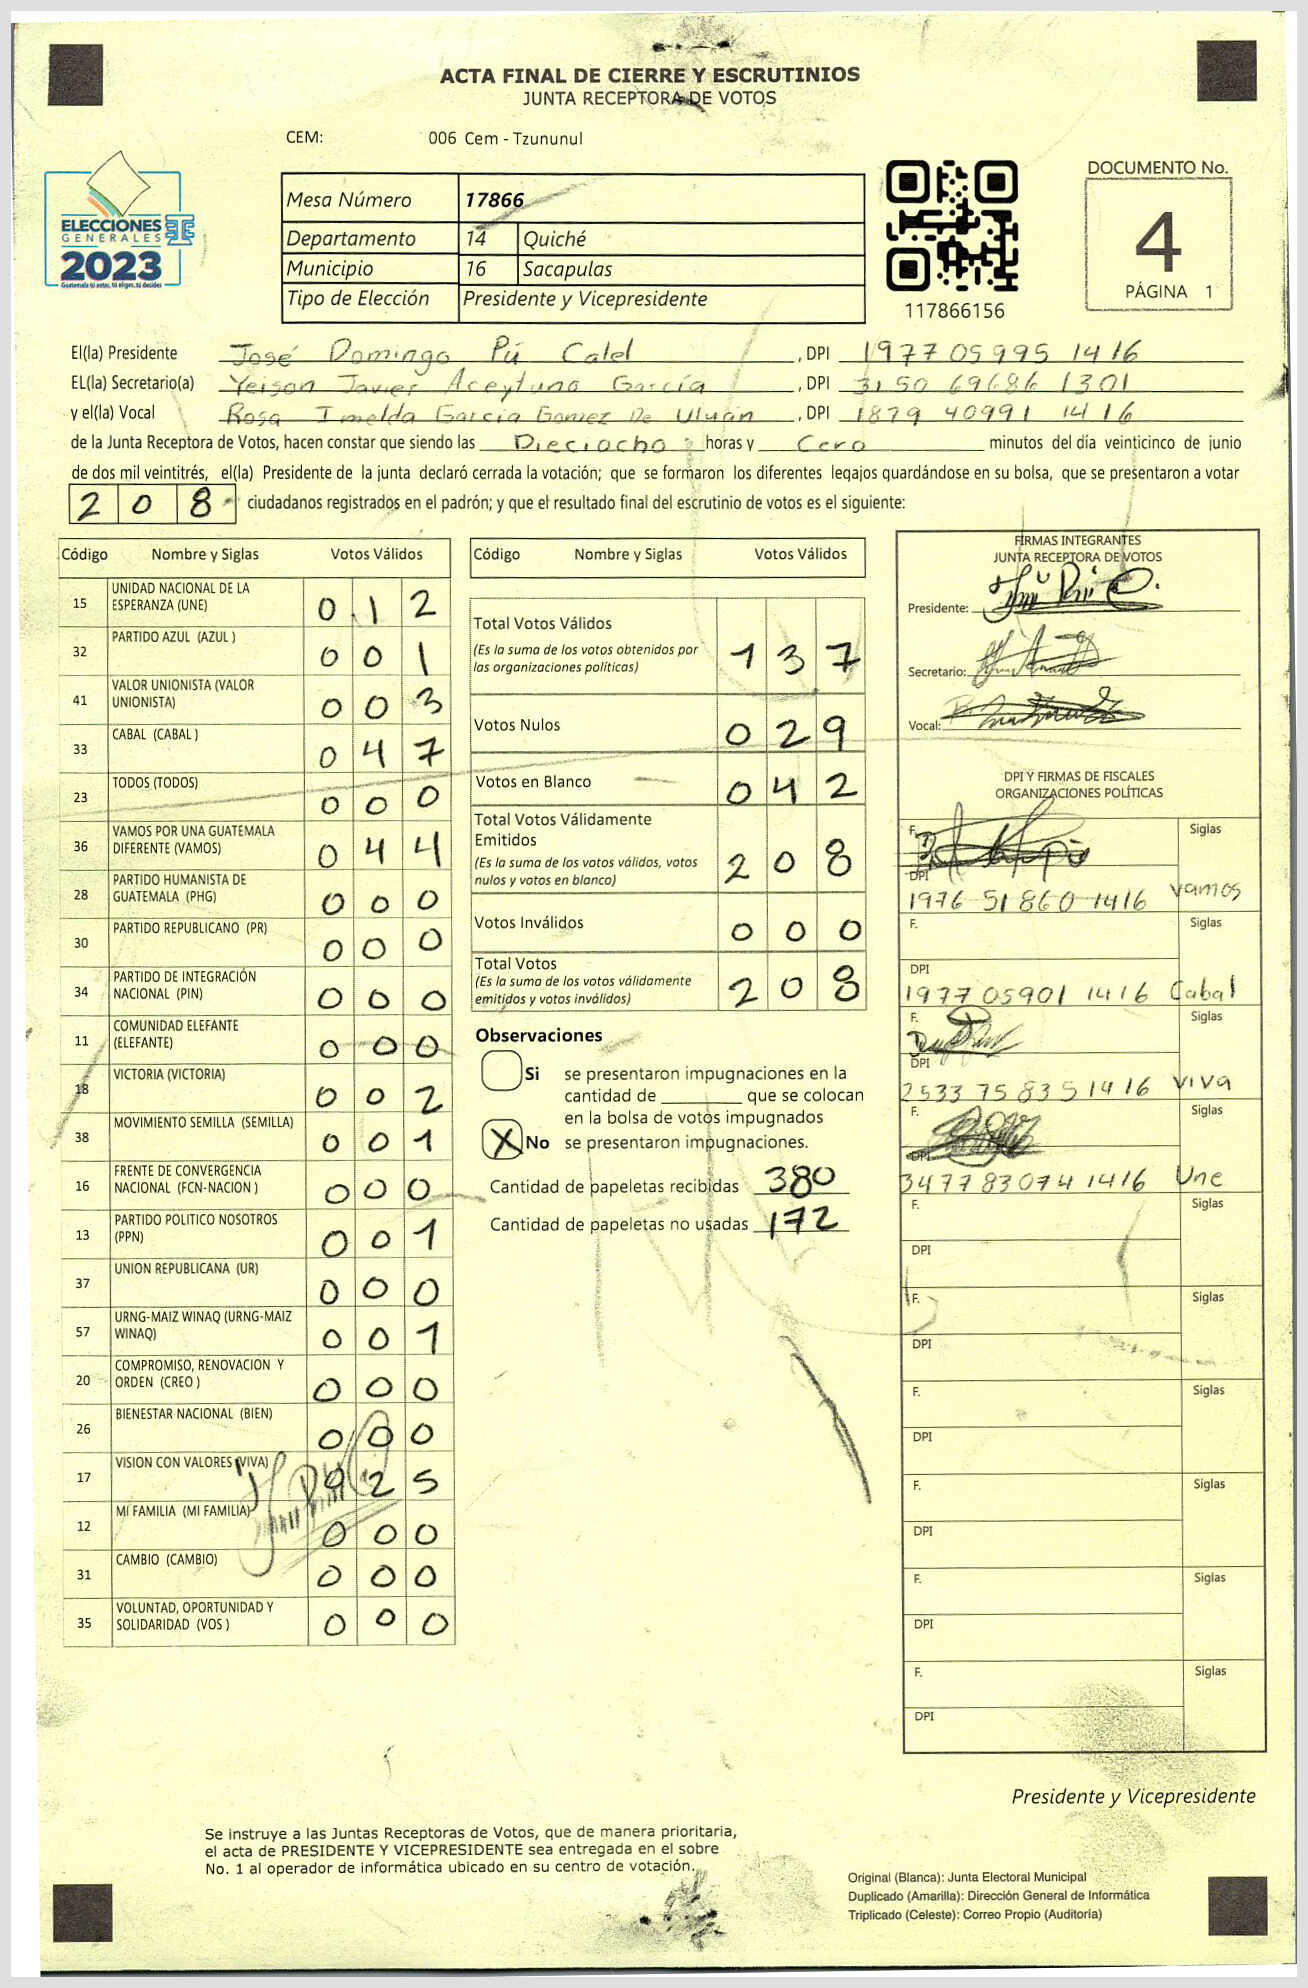 ACTA FINAL DE CIERRE Y ESCRUTINIOS
JUNTA RECEPTORA DE VOTOS
CEM: 006 Cem - Tzununul
ELECCIONES
GENERALES
2023
Guatemala tú votas, tú eliges, tú decides
Mesa Número 17866
Departamento 14 Quiché
Municipio 16 Sacapulas
Tipo de Elección Presidente y Vicepresidente
117866156
DOCUMENTO No.
4
PÁGINA 1
El(la) Presidente José Domingo Pú Calel, DPI 1977 05995 1416
EL(la) Secretario(a) Yeison Javier Aceytuno García, DPI 3150 69686 1301
y el(la) Vocal Rosa Imelda García Gomez De Uluán, DPI 1879 40991 1416
de la Junta Receptora de Votos, hacen constar que siendo las Dieciocho horas y Cero minutos del día veinticinco de junio
de dos mil veintitrés, el(la) Presidente de la junta declaró cerrada la votación; que se formaron los diferentes legajos guardándose en su bolsa, que se presentaron a votar
208 ciudadanos registrados en el padrón; y que el resultado final del escrutinio de votos es el siguiente:
Código Nombre y Siglas Votos Válidos
15 UNIDAD NACIONAL DE LA ESPERANZA (UNE) 0 1 2
32 PARTIDO AZUL (AZUL ) 0 0 1
41 VALOR UNIONISTA (VALOR UNIONISTA) 0 0 3
33 CABAL (CABAL ) 0 4 7
23 TODOS (TODOS) 0 0 0
36 VAMOS POR UNA GUATEMALA DIFERENTE (VAMOS) 0 4 4
28 PARTIDO HUMANISTA DE GUATEMALA (PHG) 0 0 0
30 PARTIDO REPUBLICANO (PR) 0 0 0
34 PARTIDO DE INTEGRACIÓN NACIONAL (PIN) 0 0 0
11 COMUNIDAD ELEFANTE (ELEFANTE) 0 0 0
18 VICTORIA (VICTORIA) 0 0 2
38 MOVIMIENTO SEMILLA (SEMILLA) 0 0 1
16 FRENTE DE CONVERGENCIA NACIONAL (FCN-NACION ) 0 0 0
13 PARTIDO POLITICO NOSOTROS (PPN) 0 0 1
37 UNION REPUBLICANA (UR) 0 0 0
57 URNG-MAIZ WINAQ (URNG-MAIZ WINAQ) 0 0 1
20 COMPROMISO, RENOVACION Y ORDEN (CREO ) 0 0 0
26 BIENESTAR NACIONAL (BIEN) 0 0 0
17 VISION CON VALORES (VIVA) 0 2 5
12 MI FAMILIA (MI FAMILIA) 0 0 0
31 CAMBIO (CAMBIO) 0 0 0
35 VOLUNTAD, OPORTUNIDAD Y SOLIDARIDAD (VOS ) 0 0 0
Código Nombre y Siglas Votos Válidos
Total Votos Válidos 1 3 7
(Es la suma de los votos obtenidos por
las organizaciones políticas)
Votos Nulos 0 2 9
Votos en Blanco 0 4 2
Total Votos Válidamente
Emitidos 2 0 8
(Es la suma de los votos válidos, votos
nulos y votos en blanco)
Votos Inválidos 0 0 0
Total Votos 2 0 8
(Es la suma de los votos válidamente
emitidos y votos inválidos)
Observaciones
Si se presentaron impugnaciones en la
cantidad de ________ que se colocan
en la bolsa de votos impugnados
X No se presentaron impugnaciones.
Cantidad de papeletas recibidas 380
Cantidad de papeletas no usadas 172
FIRMAS INTEGRANTES
JUNTA RECEPTORA DE VOTOS
Presidente:
Secretario:
Vocal:
DPI Y FIRMAS DE FISCALES
ORGANIZACIONES POLÍTICAS
F. Siglas
DPI
1976 51860 1416 vamos
F. Siglas
DPI
1977 05901 1416 Cabal
F. Siglas
DPI
2533 75835 1416 viva
F. Siglas
DPI
3477 83074 1416 Une
F. Siglas
DPI
F. Siglas
DPI
F. Siglas
DPI
F. Siglas
DPI
F. Siglas
DPI
F. Siglas
DPI
Presidente y Vicepresidente
Se instruye a las Juntas Receptoras de Votos, que de manera prioritaria,
el acta de PRESIDENTE Y VICEPRESIDENTE sea entregada en el sobre
No. 1 al operador de informática ubicado en su centro de votación.
Original (Blanca): Junta Electoral Municipal
Duplicado (Amarilla): Dirección General de Informática
Triplicado (Celeste): Correo Propio (Auditoría)